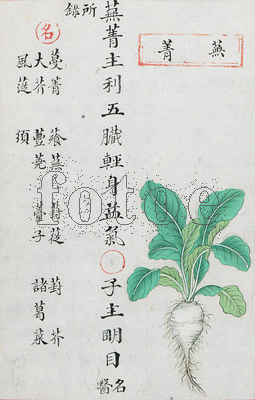 蕪菁
蕪菁主利五臟輕身益氣 子主明目名醫
所錄
名
蔓菁 蕪 葑蓯 葑芥
大芥 蕘 薹子 諸葛菜
風 須
fotoe